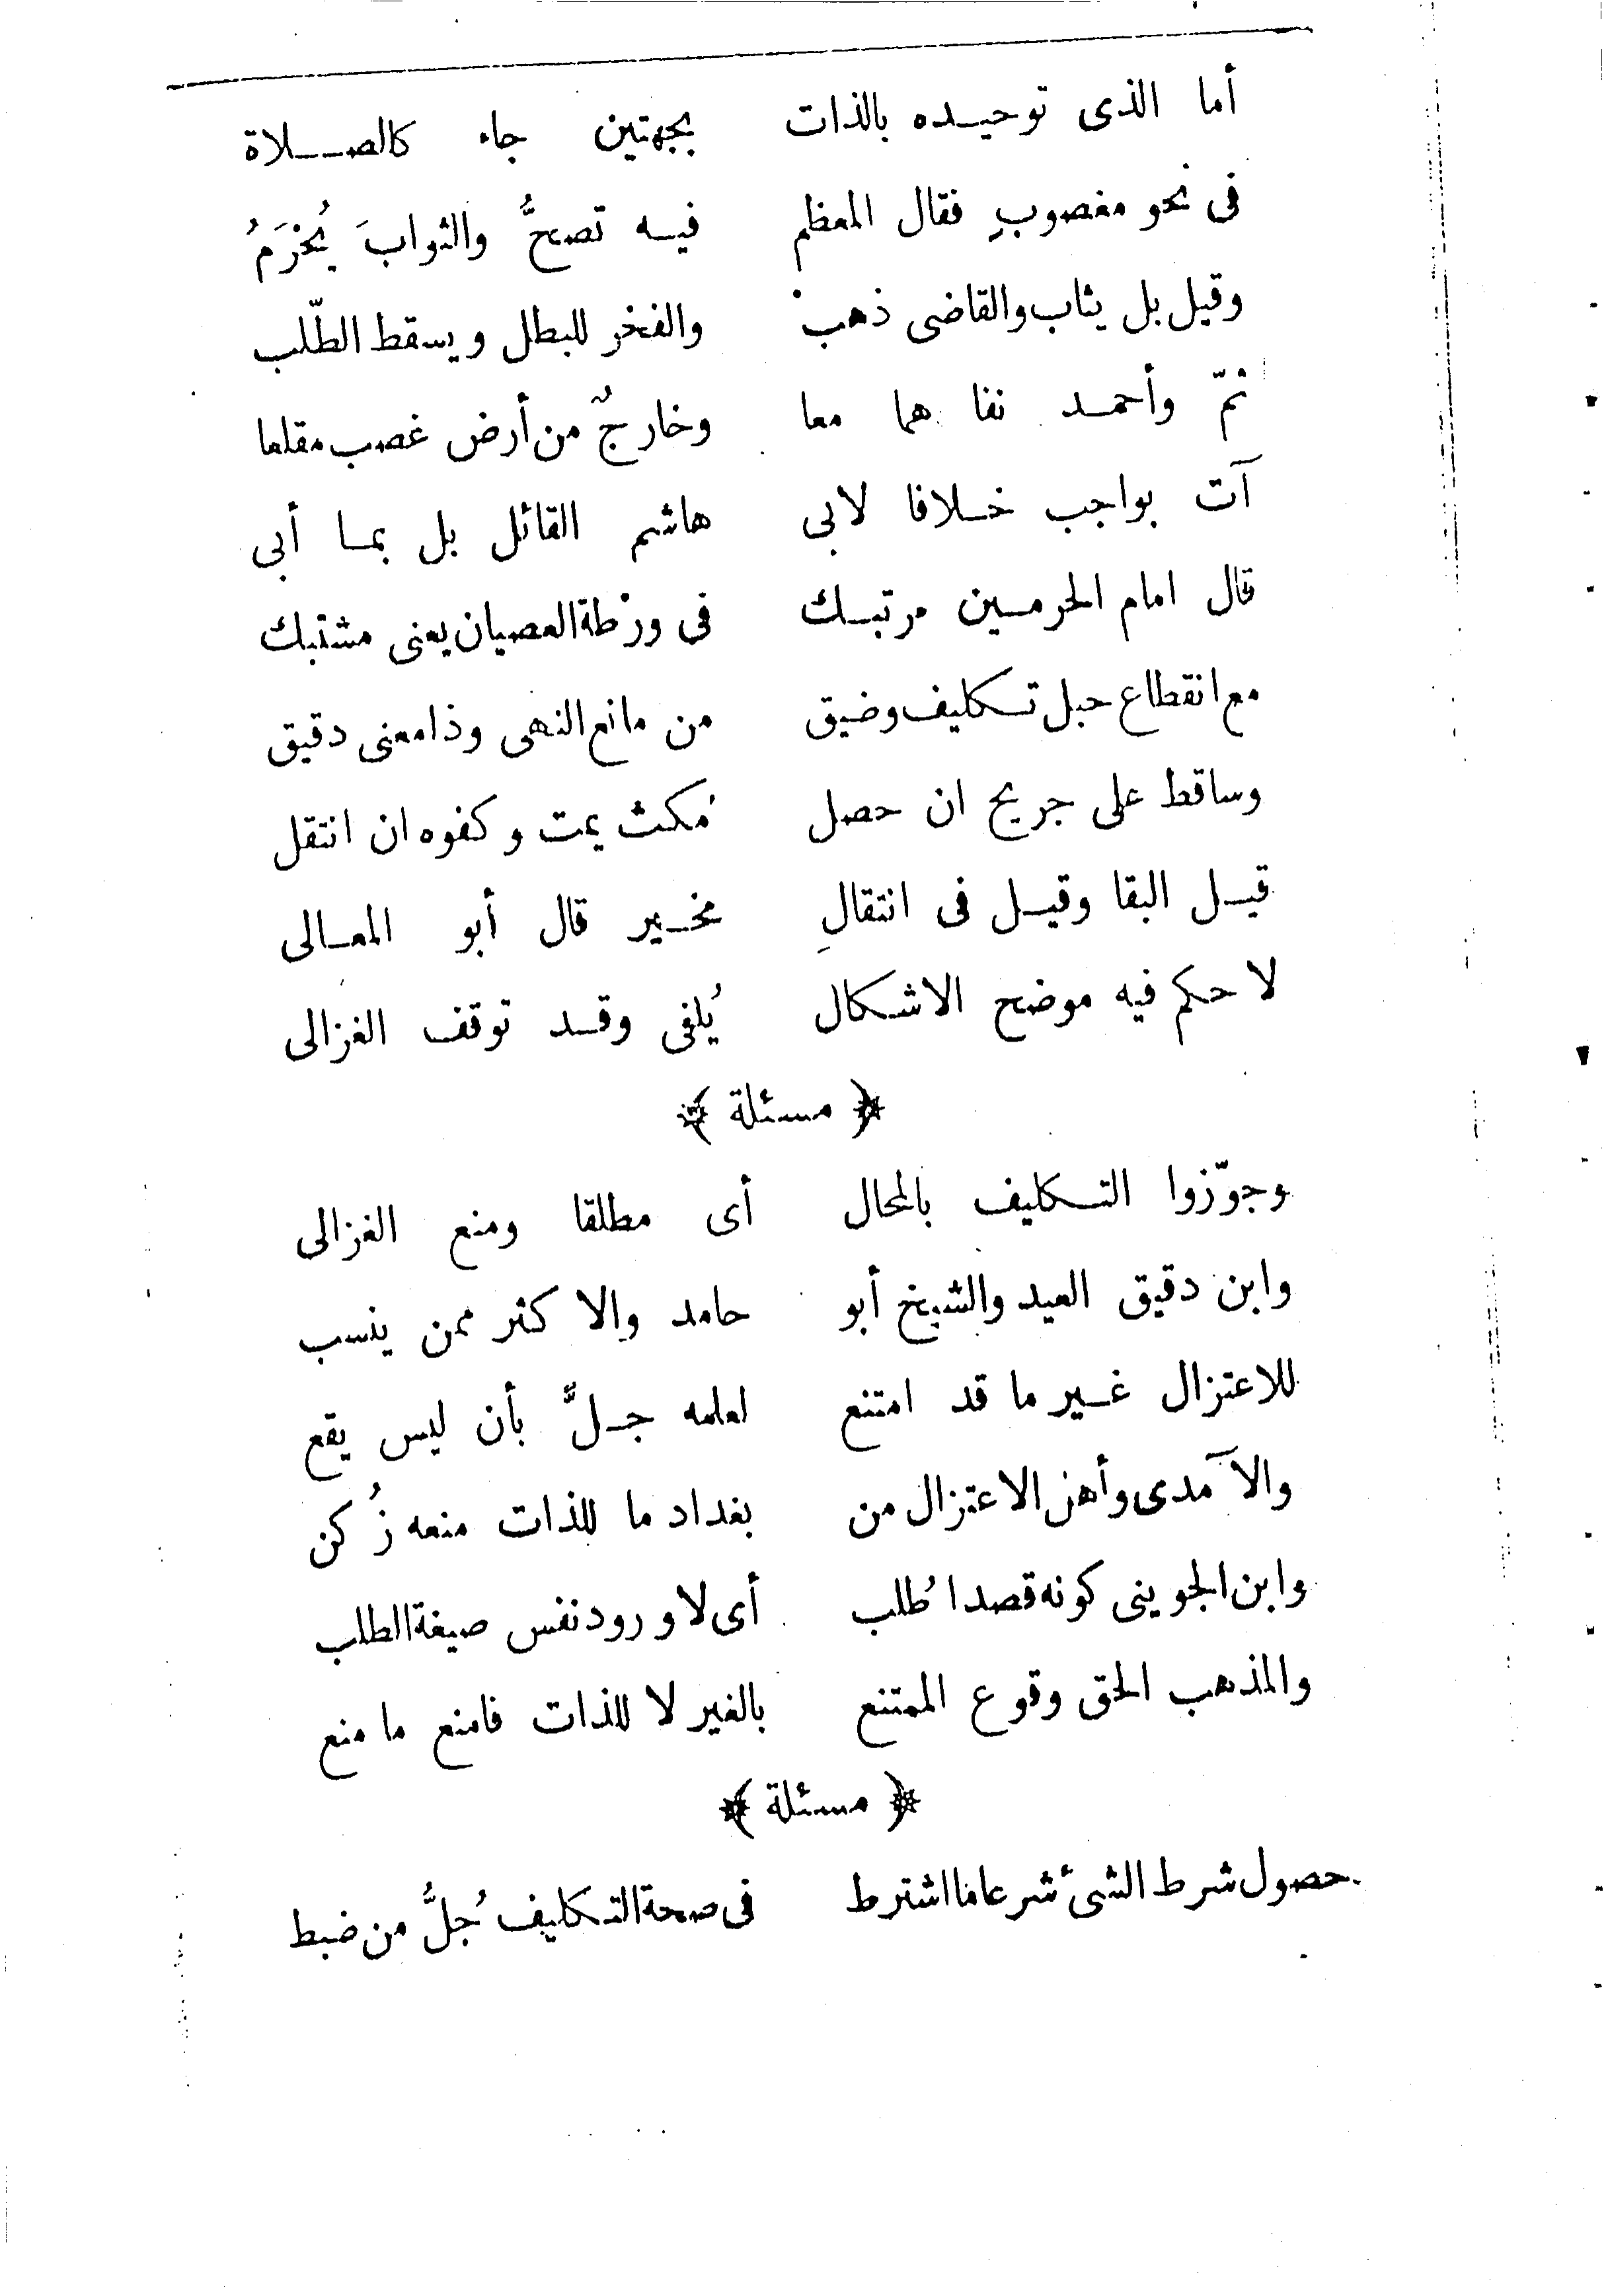 أما الذى توحيده بالذات بجهتين جاء كالصلاة
فى نحو مغصوبٍ فقال المعظم فيه تصحُّ والثوابَ يُحْرَمُ
وقيل بل يثاب والقاضى ذهبْ والفخر للبطل ويسقط الطّلب
ثمّ وأحمد نفا هما معا وخارجٌ من أرض غصب مقلعا
آت بواجب خلافا لابى هاشم القائل بل بما أبى
قال امام الحرمين مرتبك فى ورْطة العصيان يعنى مشتبك
مع انقطاع حبل تكليف وضيق من مانع النهى وذا معنى دقيق
وساقط على جريح ان حصل مُكث يمت وكفوه ان انتقل
قيل البقا وقيل فى انتقالِ مخير قال أبو المعالى
لا حكم فيه موضح الاشكال يُلفى وقد توقف الغزالى
﴿ مسئلة ﴾
وجوّزوا التكليف بالمحال أى مطلقا ومنع الغزالى
وابن دقيق العيد والشيخ أبو حامد والاكثر ممن ينسب
للاعتزال غير ما قد امتنع لعلمه جلَّ بأن ليس يقع
والآمدى وأهل الاعتزال من بغداد ما للذات منعه زُكن
وابن الجوينى كونه قصدا طُلب أى لا ورود نفس صيغة الطلب
والمذهب الحق وقوع الممتنع بالغير لا للذات فامنع ما منع
﴿ مسئلة ﴾
حصول شرط الشئ شرعا ما اشترط فى صحة التكليف جُلُّ من ضبط